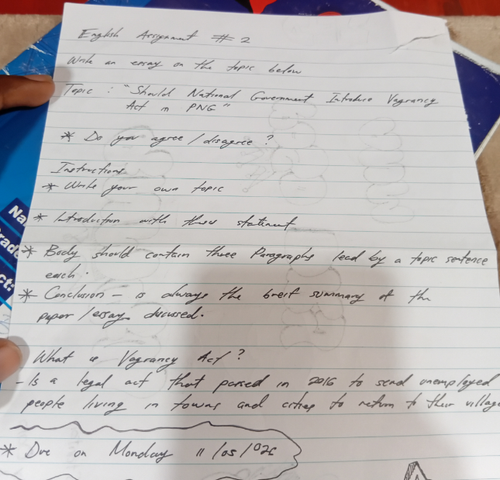 English Assignment # 2
Write an essay on the topic below
Topic : "Should National Government Introduce Vagrancy
Act in PNG"
* Do you agree / disagree ?
Instructions
* Write your own topic
* Introduction with thesis statement
* Body should contain three Paragraphs lead by a topic sentence
each.
* Conclusion – is always the breif summary of the
paper / essay discussed.
What is Vagrancy Act ?
- Is a legal act that passed in 2016 to send unemployed
people living in towns and cities to return to their village
* Due on Monday 11 / 05 / 026
Na
rade
ct: